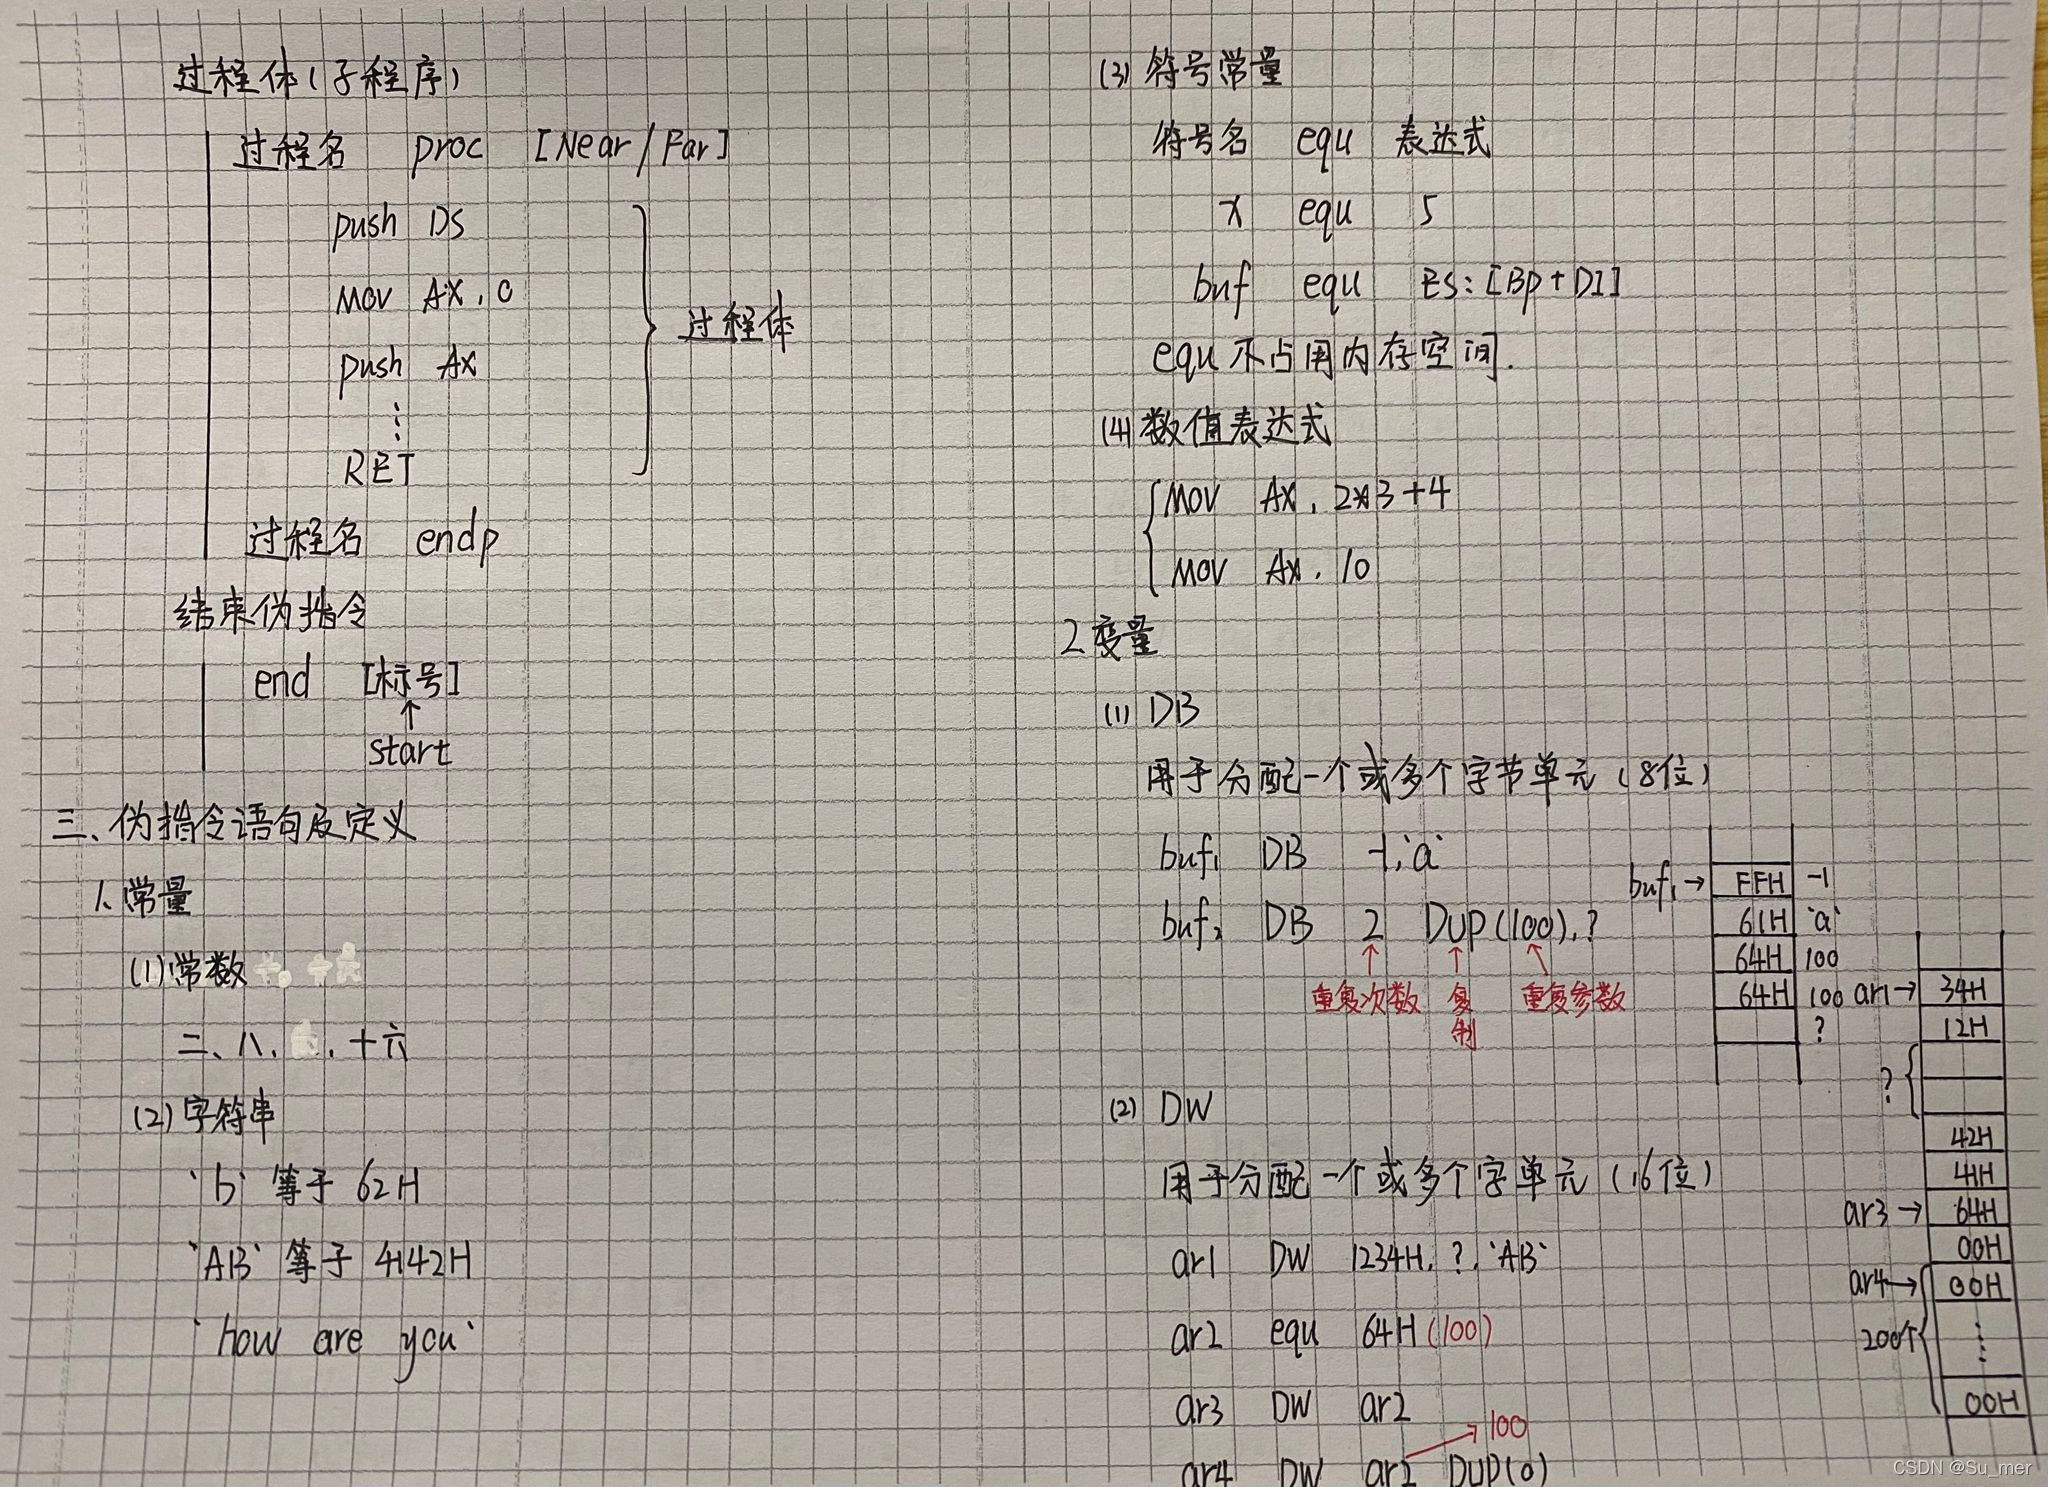 过程体(子程序)
过程名 proc [Near/Far]
push DS
Mov AX, 0
push AX
⋮
RET
过程体
过程名 endp
结束伪指令
end [标号]
↑
start
三、伪指令语句及定义
1、常量
(1)常数
二、八、 、十六
(2)字符串
'b' 等于 62H
'AB' 等于 4142H
'how are you'
(3) 符号常量
符号名 equ 表达式
x equ 5
buf equ ES:[Bp+DI]
equ不占用内存空间.
(4)数值表达式
Mov AX, 2*3+4
Mov AX, 10
2、变量
(1) DB
用于分配一个或多个字节单元(8位)
buf₁ DB -1,'a'
buf₂ DB 2 DUP(100),?
重复次数 复制 重复参数
buf₁→ FFH -1
61H 'a'
64H 100
64H 100
?
(2) DW
用于分配一个或多个字单元(16位)
ar1 DW 1234H, ?, 'AB'
ar2 equ 64H(100)
ar3 DW ar2
→100
ar4 DW ar2 DUP(0)
ar1→ 34H
12H
?
42H
41H
ar3→ 64H
00H
ar4→ 00H
200个 ⋮
00H
CSDN @Su_mer